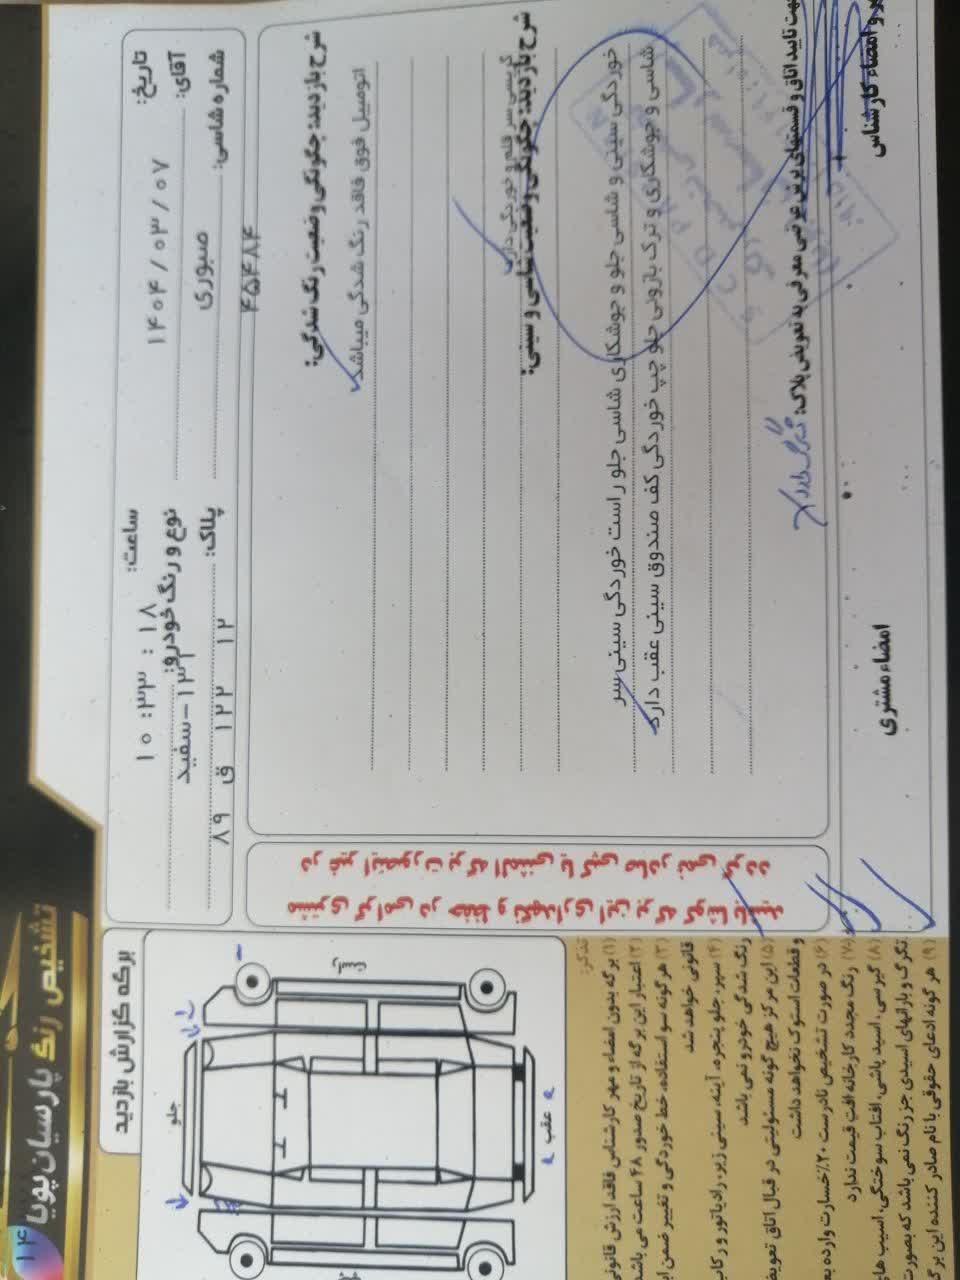 تشخیص رنگ پارسیان پویا
۱۴
برگه گزارش بازدید
تاریخ: ۱۴۰۴/۰۳/۰۷
ساعت: ۱۰:۳۳:۱۸
آقای: صبوری
نوع و رنگ خودرو: ۱۳۱-سفید
شماره شاسی: ۴۵۴۸۴
پلاک: ۱۲ ۱۲۲ ق ۸۹
شرح بازدید: چگونگی وضعیت رنگ شدگی:
اتومبیل فوق فاقد رنگ شدگی میباشد
شرح بازدید: چگونگی وضعیت شاسی و سینی:
خوردگی سینی و شاسی جلو و جوشکاری شاسی جلو راست خوردگی سینی سر
شاسی و جوشکاری و ترک بازوئی جلو چپ خوردگی کف صندوق سینی عقب دارد
جهت تایید اتاق و قسمتهای برش عوضی معرفی به تعویض پلاک:
مهر و امضاء کارشناس
امضاء مشتری
مشتری گرامی در حفظ و نگهداری این برگه کوشا باشید
در غیر اینصورت برگه المثنی یا کپی صادر نمی گردد
راست
جلو
عقب
تذکر:
۱) برگه بدون امضاء و مهر کارشناس فاقد ارزش قانونی
۲) اعتبار این برگه از تاریخ صدور ۴۸ ساعت می باشد
۳) هرگونه سو استفاده، خط خوردگی و تغییر ضمن
قانونی خواهد شد
۴) سپر، جلو پنجره، آینه، سینی زیر، رادیاتور و رکاب
رنگ شدگی خودرو نمی باشد
۵) این مرکز هیچ گونه مسئولیتی در قبال اتاق تعویض
و قطعات استوک نخواهد داشت
۶) در صورت تشخیص نادرست ۲۰٪ خسارت وارده
۷) رنگ مجدد کارخانه افت قیمت ندارد
۸) گیرسی، اسید پاشی، افتاب سوختگی، اسیب های
تگرگ و بارانهای اسیدی جز رنگ نمی باشد که بصورت
۹) هر گونه ادعای حقوقی با نام صادر کننده این برگ